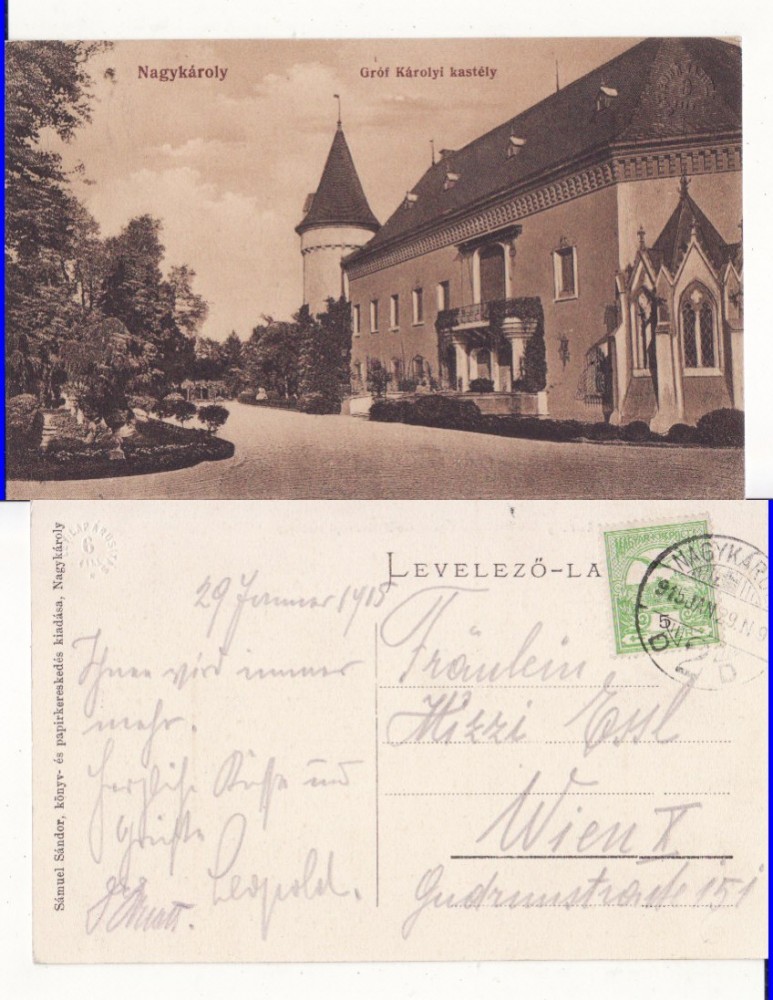 Nagykároly
Gróf Károlyi kastély
Sámuel Sándor, könyv- és papirkereskedés kiadása, Nagykároly
6
LEVELEZŐ-LA
MAGYAR KIR. POSTA
5
NAGYKÁRO
915 JAN 29. N 9
D
29 Jenner 1915
Ihnen wird immer
mehr.
Herzliche Küsse und
Grüße
Leopold.
Fräulein
Mizzi Essl
Wien X
Gudrunstraße 151